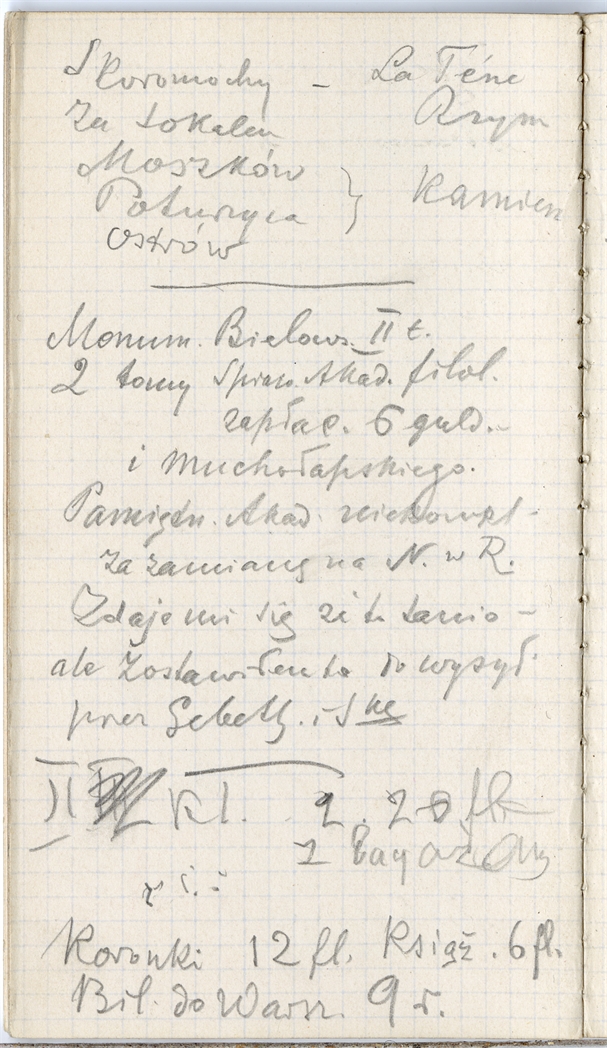 Skoromochy – La Téne
Za Sokalem Rzym
Moszków
Poturzyca } Kamień
Ostrów
Monum. Bielows. II t.
2 tomy Spraw. Akad. filol.
zapłac. 6 guld.
i Muchołapskiego.
Pamiętn. Akad. niekompl.
za zamianę na N. w R.
Zdaje mi się że to tanio –
ale zostawiłem to do wysył.
przez Gebeth. i Skę
II kl. 2.20 fl.
z bagażem
Koronki 12 fl. Książ. 6 fl.
Bil. do Warsz. 9 r.